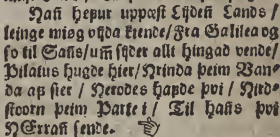 Nafn hefur uppæst Lyðen Lands /
leinge miøg vyda kiende / Fra Galilea og
so til Salis / um syder allt hingad vende /
Pilatus hugde hier / Nrinda þeim Vand-
da af sier / Nerodes hafde þvi / Nrd-
stoorn þeim Parte i / Til hans þvi
NErran sende.